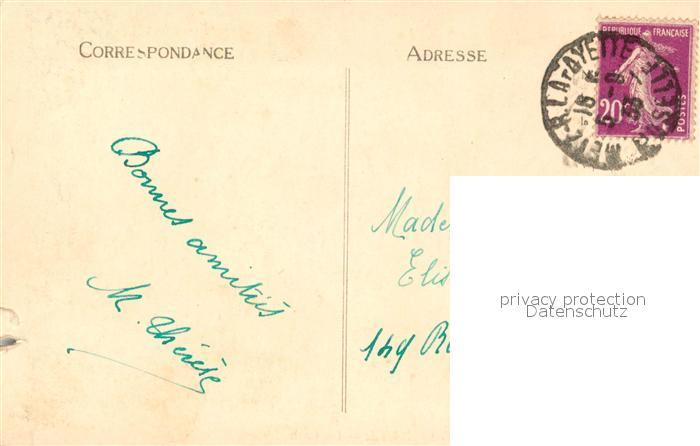 CORRESPONDANCE
ADRESSE
REPUBLIQUE FRANÇAISE
20c
POSTES
LA FAYETTE
Bonnes amitiés
M. Thérèse
Made
Elis
149 R
privacy protection
Datenschutz